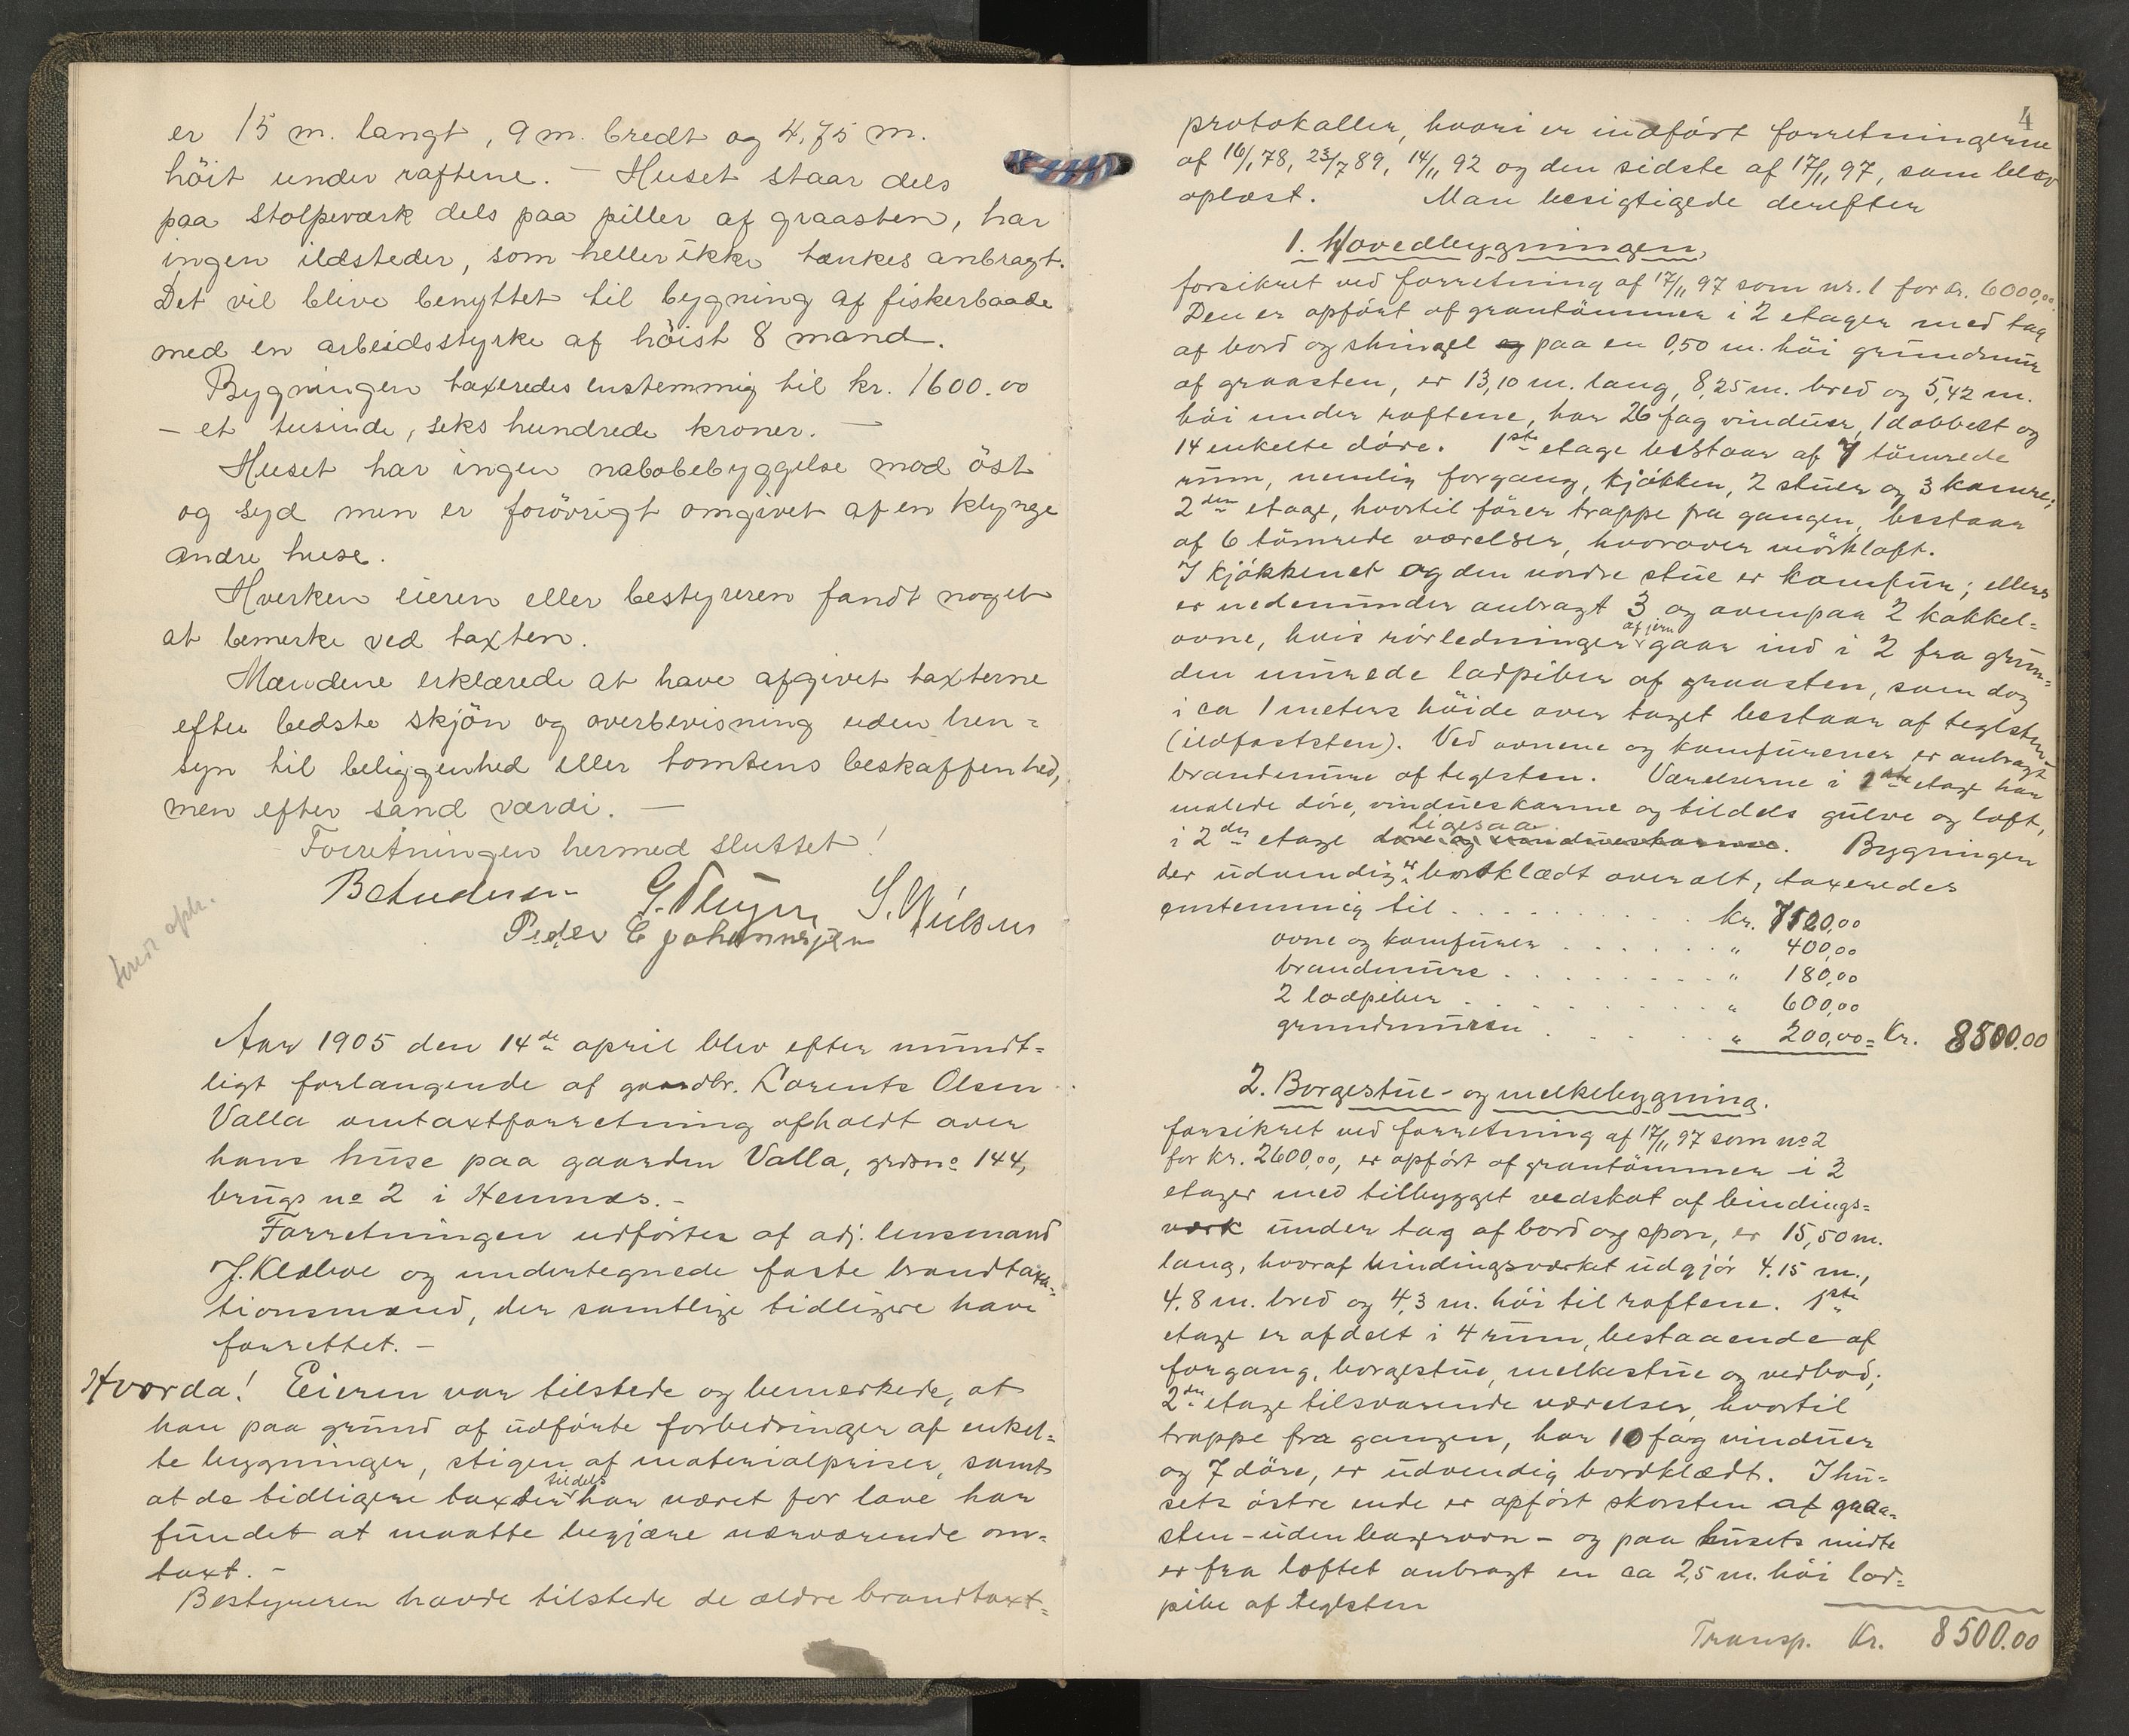 er 15 m. langt, 9 m. bredt og 4,75 m.
höit under raftene. – Huset staar dels
paa stolpeværk dels paa piller af graasten, har
ingen ildsteder, som heller ikke tænkes anbragt.
Det vil blive benyttet til bygning af fiskerbaade
med en arbeidsstyrke af höist 8 mand.
Bygningen taxeredes enstemmig til kr. 1600.00
– et tusinde, seks hundrede kroner. –
Huset har ingen nabobebyggelse mod öst
og syd men er forövrigt omgivet af en klynge
andre huse.
Hverken eieren eller bestyreren fandt noget
at bemerke ved taxten.
Mændene erklærede at have afgivet taxterne
efter bedste skjön og overbevisning uden hen=
syn til beliggenhed eller tomtens beskaffenhed,
men efter sand værdi. –
Forretningen hermed sluttet!
Peder C Johannesen
Aar 1905 den 14de april blev efter mundt=
ligt forlangende af gaardbr. Lorents Olsen
Valla omtaxtforretning afholdt over
hans huse paa gaarden Valla, grdsno 144,
brugs no 2 i Hemnæs. –
Forretningen udförtes af adj. lensmand
J. Klæboe og undertegnede faste brandtaxa=
tionsmænd, der samtlige tidligere have
forrettet. –
Hvorda! Eieren var tilstede og bemærkede, at
han paa grund af udförte forbedringer af enkel=
te bygninger, stigen af materialpriser, samt
at de tidligere taxter tildels har været for lave har
fundet at maatte begjære nærværende om=
taxt. –
Bestyreren havde tilstede de ældre brandtaxt=
4
protokoller, hvori er indfört forretningerne
af 16/1 78, 23/7 89, 14/11 92 og den sidste af 17/11 97, som blev
oplæst. Man besigtigede derefter
1. Hovedbygningen,
forsikret ved forretning af 17/11 97 som nr. 1 for kr. 6000,00
Den er opfört af grantömmer i 2 etager med tag
af bord og shingel og paa en 0,50 m. höi grundmur
af graasten, er 13,10 m. lang, 8,25 m. bred og 5,42 m.
höi under raftene, har 26 fag vinduer, 1 dobbelt og
14 enkelte döre. 1ste etage bestaar af 7 tömrede
rum, nemlig forgang, kjökken, 2 stuer og 3 kamre;
2den etage, hvortil förer trappe fra gangen, bestaar
af 6 tömrede værelser, hvorover mörkloft.
I kjökkenet og den nordre stue er komfur; ellers
er nedenunder anbragt 3 og ovenpaa 2 kakkel=
ovne, hvis rörledninger af jern gaar ind i 2 fra grun=
den murede ladpiber af graasten, som dog
i ca 1 meters höide over taget bestaar af teglsten
(ildfaststen). Ved ovnene og komfurener er anbragt
brandmure af teglsten. Værelserne i 1ste etage har
malede döre, vindueskarme og tildels gulve og loft,
i 2den etage döre og vindueskarme ligesaa. Bygningen
der udvendig er bordklædt overalt, taxeredes
enstemmig til . . . . . . . . . kr. 7120,00
ovne og komfurer . . . . . . " 400,00
brandmure . . . . . . . . " 180,00
2 ladpiber . . . . . . . . " 600,00
grundmuren . . . . . . " 200,00 = Kr. 8500.00
2. Borgestue- og melkebygning.
forsikret ved forretning af 17/11 97 som no 2
for kr. 2600,00, er opfört af grantömmer i 2
etager med tilbygget vedskot af bindings=
værk under tag af bord og spon, er 15,50 m.
lang, hvoraf bindingsværket udgjör 4.15 m.,
4.8 m. bred og 4,3 m. höi til raftene. 1ste
etage er afdelt i 4 rum, bestaaende af
forgang, borgestue, melkestue og vedbod;
2den etage tilsvarende værelser, hvortil
trappe fra gangen, har 10 fag vinduer
og 7 döre, er udvendig bordklædt. I hu=
sets östre ende er opfört skorsten af graa=
sten – uden bagerovn – og paa husets midte
er fra loftet anbragt en ca 2,5 m. höi lad=
pibe af teglsten
Transp. Kr. 8500.00